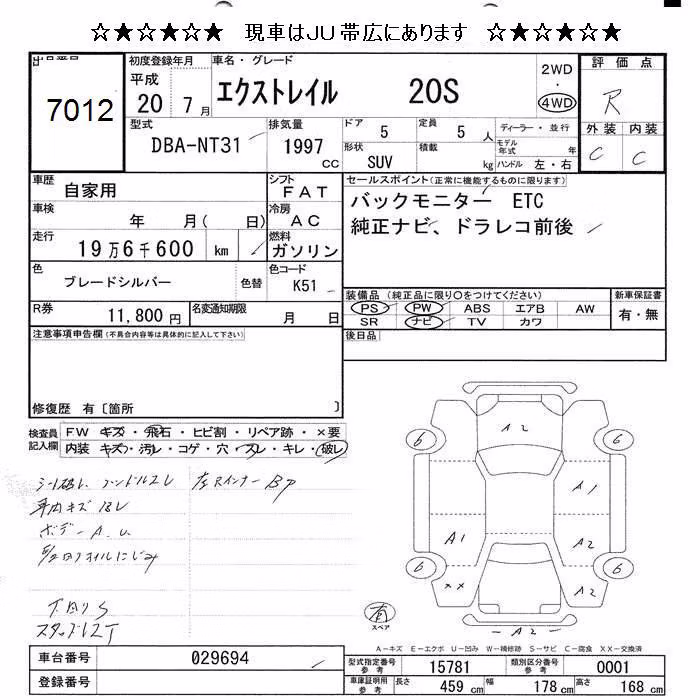 ☆★☆★☆★ 現車はJU帯広にあります ☆★☆★☆★
出品番号 7012
初度登録年月 平成 20 年 7 月
車名・グレード エクストレイル 20S
2WD ・ 4WD
評価点 R
外装 C 内装 C
型式 DBA-NT31
排気量 1997 CC
ドア 5 定員 5 人
形状 SUV 積載 kg
ディーラー・並行
モデル年式 年
ハンドル 左・右
車歴 自家用
シフト FAT
車検 年 月( 日)
冷房 AC
走行 19万6千600 km
燃料 ガソリン
色 ブレードシルバー 色替
色コード K51
R券 11,800 円
名変通知期限 月 日
セールスポイント(正常に機能するものに限ります)
バックモニター ETC
純正ナビ、ドラレコ前後
装備品(純正品に限り○をつけてください)
新車保証書
PS PW ABS エアB AW
有・無
SR ナビ TV カワ
後日品
注意事項申告欄(不具合内容等は具体的に記入して下さい)
修復歴 有〔箇所 〕
検査員記入欄
FW キズ・飛石・ヒビ割・リペア跡・×要
内装 キズ・汚レ・コゲ・穴・スレ・キレ・破レ
シート破レ ハンドルスレ
車内キズ 汚レ
ボデーA.U
下回りS
スタッドレスT
A2
6 6
A1
A1 A2
6 ×× 6
A2
有 スペア
A-キズ E-エクボ U-凹み W-補修跡 S-サビ C-腐食 XX-交換済
車台番号 029694
登録番号
型式指定番号 参考 15781
類別区分番号 参考 0001
車庫証明用 参考 長さ 459 cm 幅 178 cm 高さ 168 cm